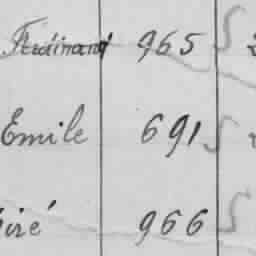 Ferdinand 965
Emile 691
iré 966